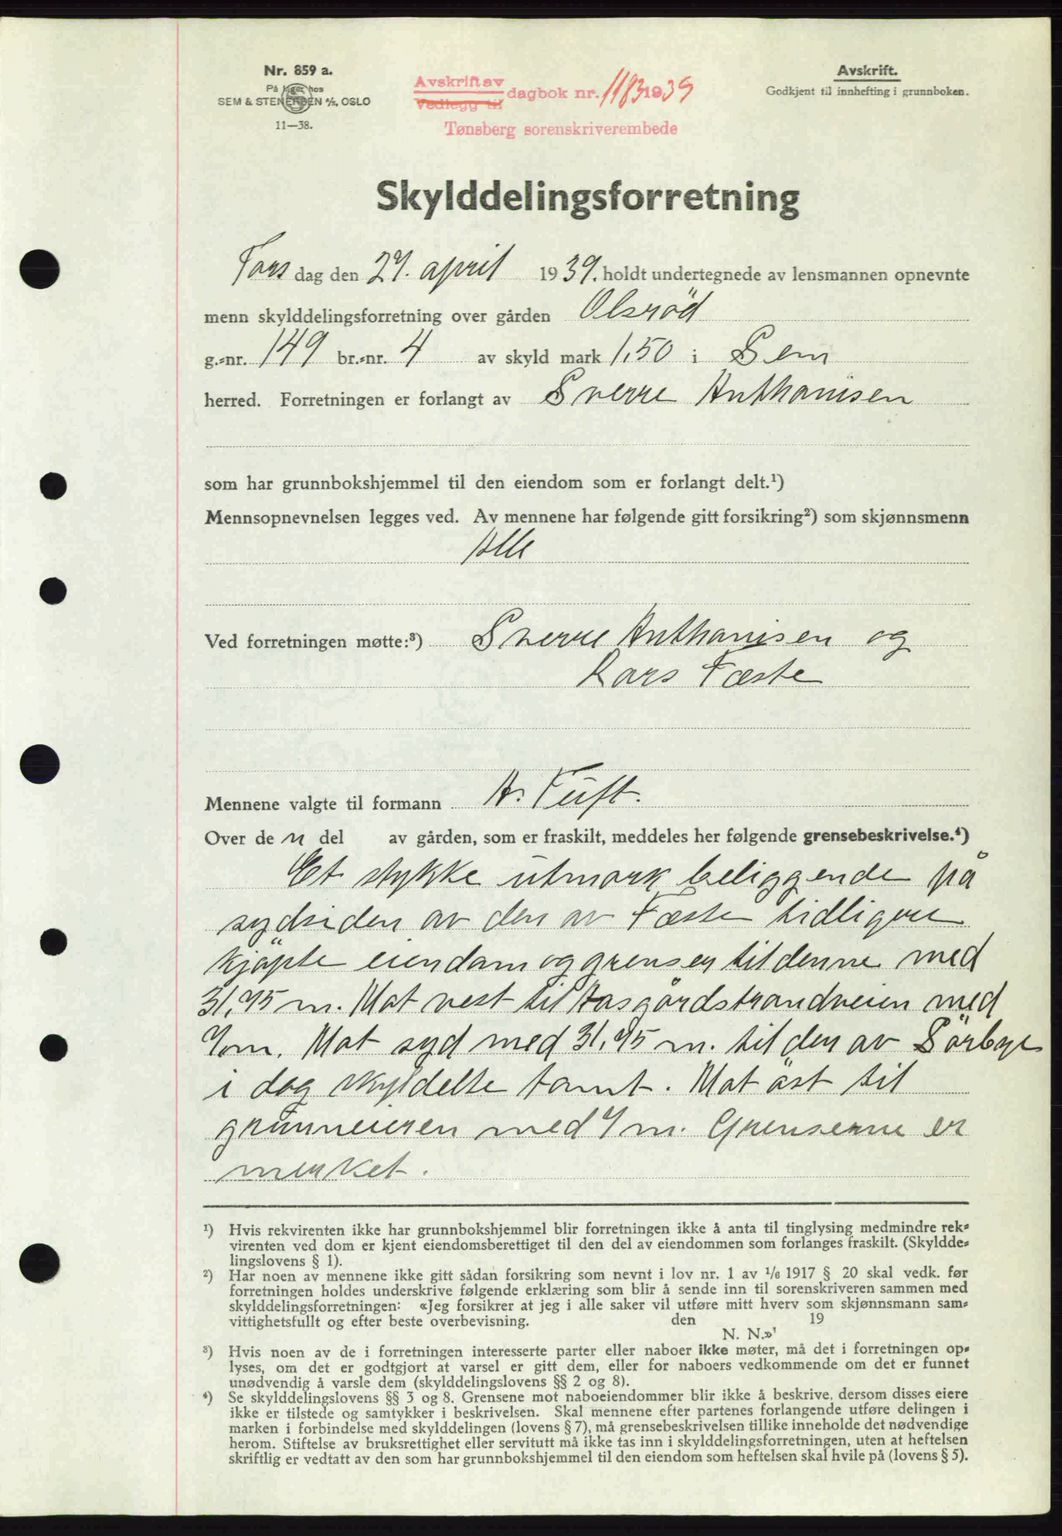 Nr. 859 a.
På lager hos
SEM & STENERSEN A/S, OSLO
11—38.
Avskrift av
Vedlegg til
dagbok nr. 1183 1939
Tønsberg sorenskriverembede
Avskrift.
Godkjent til innhefting i grunnboken.
Skylddelingsforretning
Tors dag den 27. april 1939. holdt undertegnede av lensmannen opnevnte
menn skylddelingsforretning over gården Olsröd
g.-nr. 149 br.-nr. 4 av skyld mark 1,50 i Sem
herred. Forretningen er forlangt av Sverre Anthonisen
som har grunnbokshjemmel til den eiendom som er forlangt delt.¹)
Mennsopnevnelsen legges ved. Av mennene har følgende gitt forsikring²) som skjønnsmenn
Alle
Ved forretningen møtte:³) Sverre Anthonisen og
Lars Fæste
Mennene valgte til formann A. Tuft.
Over de n del av gården, som er fraskilt, meddeles her følgende grensebeskrivelse.⁴)
Et stykke utmark beliggende på
sydsiden av den av Fæste tidligere
kjöpte eiendom og grenser til denne med
31,75 m. Mot vest til Aasgårdstrandveien med
7 m. Mot syd med 31,75 m. til den av Sörbye
i dag skyldelte tomt. Mot öst til
grunneieren med 7 m. Grenserne er
merket.
¹) Hvis rekvirenten ikke har grunnbokshjemmel blir forretningen ikke å anta til tinglysing medmindre rek-
virenten ved dom er kjent eiendomsberettiget til den del av eiendommen som forlanges fraskilt. (Skyldde-
lingslovens § 1).
²) Har noen av mennene ikke gitt sådan forsikring som nevnt i lov nr. 1 av 1/6 1917 § 20 skal vedk. før
forretningen holdes underskrive følgende erklæring som blir å sende inn til sorenskriveren sammen med
skylddelingsforretningen: «Jeg forsikrer at jeg i alle saker vil utføre mitt hverv som skjønnsmann sam-
vittighetsfullt og efter beste overbevisning. den 19
N. N.»
³) Hvis noen av de i forretningen interesserte parter eller naboer ikke møter, må det i forretningen op-
lyses, om det er godtgjort at varsel er gitt dem, eller for naboers vedkommende om det er funnet
unødvendig å varsle dem (skylddelingslovens §§ 2 og 8).
⁴) Se skylddelingslovens §§ 3 og 8. Grensene mot naboeiendommer blir ikke å beskrive, dersom disses eiere
ikke er tilstede og samtykker i beskrivelsen. Skal mennene efter partenes forlangende utføre delingen i
marken i forbindelse med skylddelingen (lovens § 7), må grensebeskrivelsen tillike inneholde det nødvendige
herom. Stiftelse av bruksrettighet eller servitutt må ikke tas inn i skylddelingsforretningen, uten at heftelsen
skriftlig er vedtatt av den som har grunnbokshjemmel til den eiendom som heftelsen skal hvile på (lovens § 5).